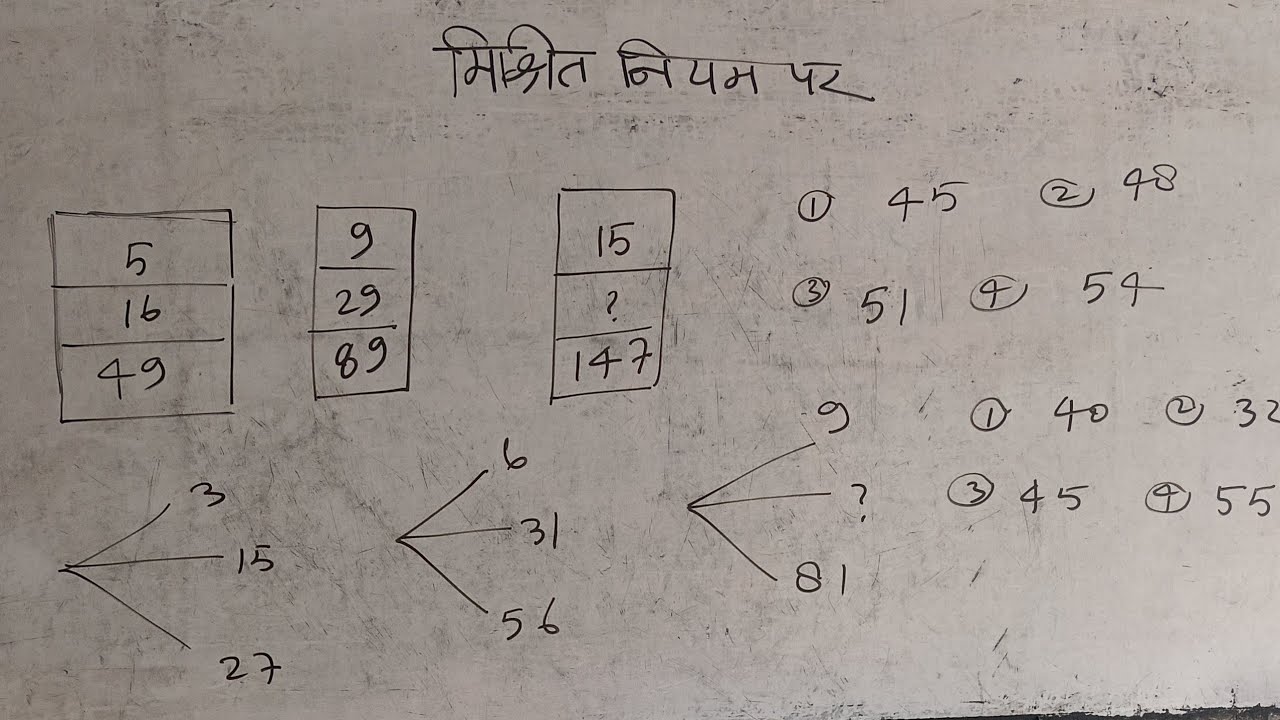 मिश्रित नियम पर
5
16
49
9
29
89
15
?
147
① 45 ② 48
③ 51 ④ 54
3
15
27
6
31
56
9
?
81
① 40 ② 32
③ 45 ④ 55